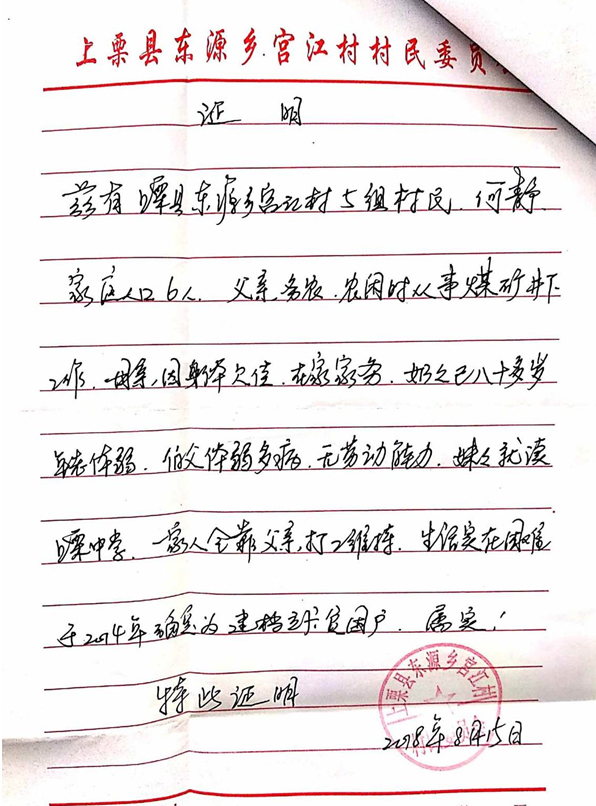 上栗县东源乡宫江村村民委员
证 明
兹有上栗县东源乡宫江村5组村民、何静
家庭人口6人、父亲务农、农闲时从事煤矿井下
工作、母亲因身体欠佳、在家家务、奶奶已八十多岁
年老体弱、伯父体弱多病、无劳动能力、妹妹就读
上栗中学、一家人全靠父亲打工维持、生活实在困难
于2014年确定为建档立卡贫困户、属实！
特此证明
上栗县东源乡宫江村
2018年8月15日